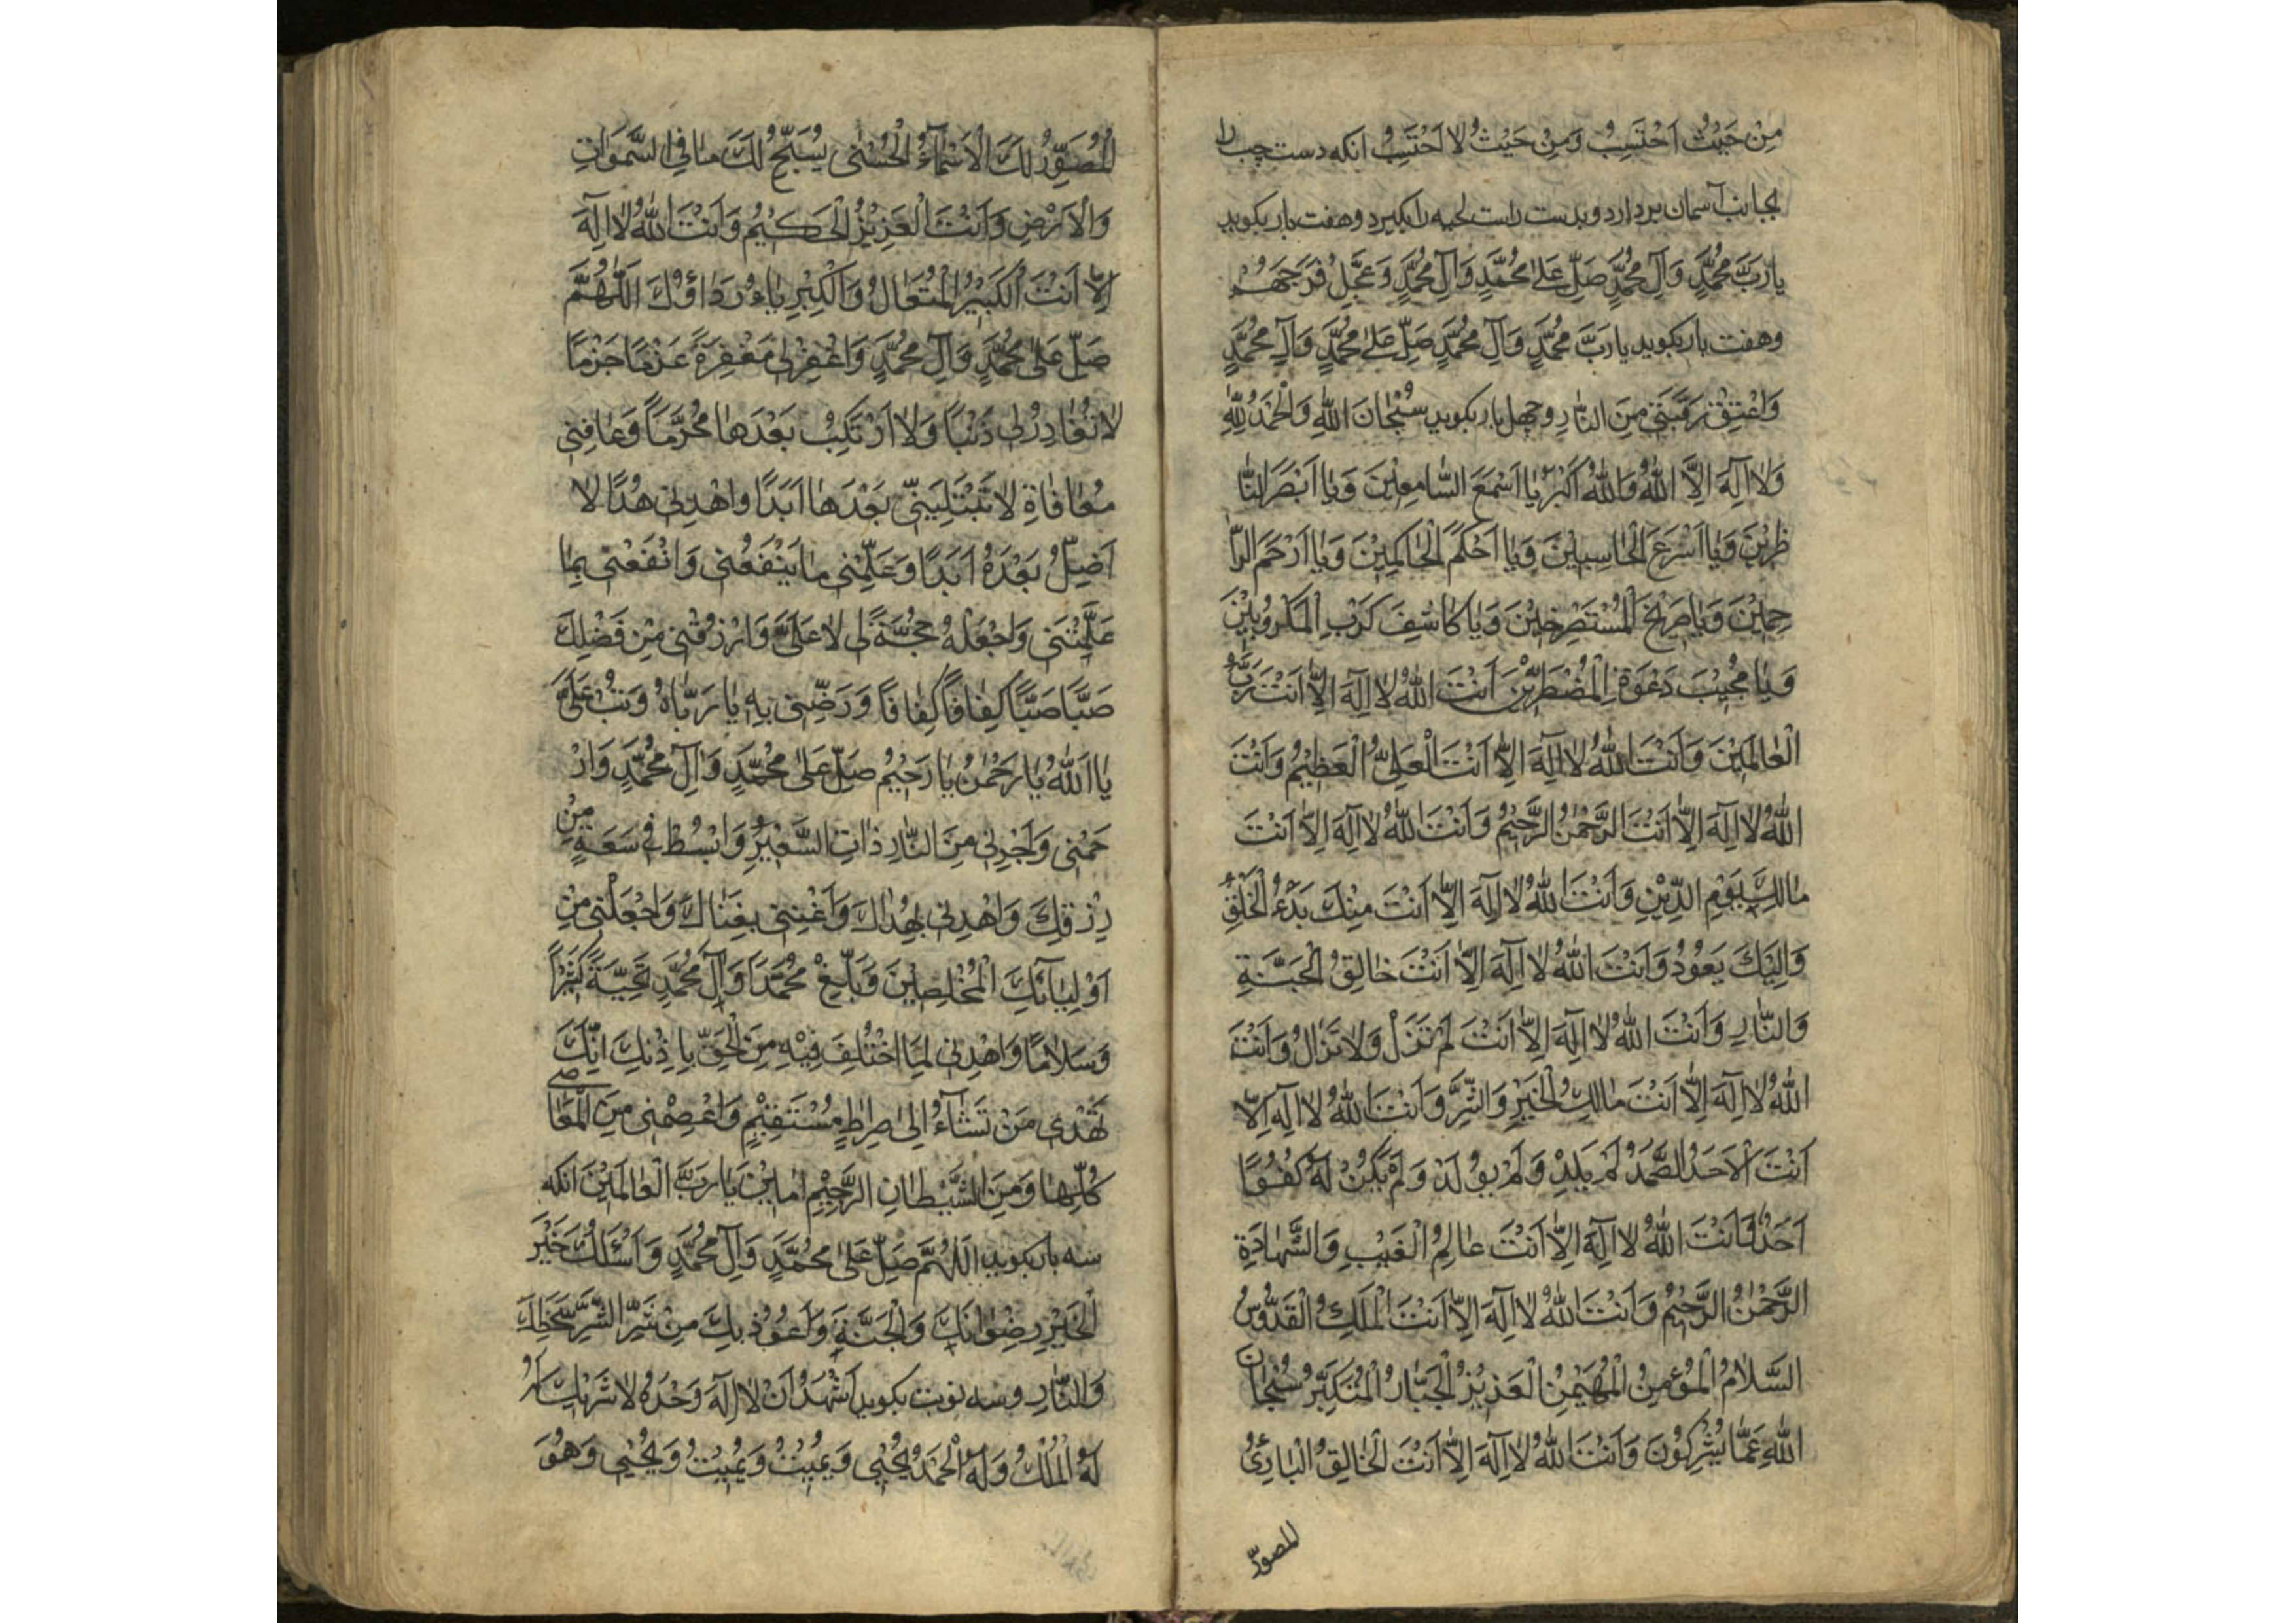 مِنْ حَيْثُ اَحْتَسِبُ وَمِنْ حَيْثُ لا اَحْتَسِبُ انکه دست چب را
بجانب آسمان بردارد و بدست راست لحیه را بکیرد و هفت بار بکوید
يا رَبَّ مُحَمَّدٍ وَآلِ مُحَمَّدٍ صَلِّ عَلىٰ مُحَمَّدٍ وَآلِ مُحَمَّدٍ وَعَجِّلْ فَرَجَهُمْ
وهفت بار بکوید يا رَبَّ مُحَمَّدٍ وَآلِ مُحَمَّدٍ صَلِّ عَلىٰ مُحَمَّدٍ وَآلِ مُحَمَّدٍ
وَاعْتِقْ رَقَبَتى مِنَ النّارِ وچهل بار بکوید سُبْحٰانَ اللهِ وَالْحَمْدُ لِلّٰهِ
وَلٰا اِلٰهَ اِلَّا اللهُ وَاللهُ اَكْبَرُ يٰا اَسْمَعَ السّٰامِعينَ وَيٰا اَبْصَرَ النّٰا
ظِرينَ وَيٰا اَسْرَعَ الْحٰاسِبينَ وَيٰا اَحْكَمَ الْحٰاكِمينَ وَيٰا اَرْحَمَ الرّٰا
حِمينَ وَيٰا صَريخَ الْمُسْتَصْرِخينَ وَيٰا كٰاشِفَ كَرْبِ الْمَكْرُوبينَ
وَيٰا مُجيبَ دَعْوَةِ الْمُضْطَرّينَ اَنْتَ اللهُ لٰا اِلٰهَ اِلّٰا اَنْتَ رَبُّ
الْعٰالَمينَ وَاَنْتَ اللهُ لٰا اِلٰهَ اِلّٰا اَنْتَ الْعَلِىُّ الْعَظيمُ وَاَنْتَ
اللهُ لٰا اِلٰهَ اِلّٰا اَنْتَ الرَّحْمٰنُ الرَّحيمُ وَاَنْتَ اللهُ لٰا اِلٰهَ اِلّٰا اَنْتَ
مٰالِكِ يَوْمِ الدّينِ وَاَنْتَ اللهُ لٰا اِلٰهَ اِلّٰا اَنْتَ مِنْكَ بَدْءُ الْخَلْقِ
وَاِلَيْكَ يَعُودُ وَاَنْتَ اللهُ لٰا اِلٰهَ اِلّٰا اَنْتَ خٰالِقُ الْجَنَّةِ
وَالنّٰارِ وَاَنْتَ اللهُ لٰا اِلٰهَ اِلّٰا اَنْتَ لَمْ تَزَلْ وَلٰا تَزٰالُ وَاَنْتَ
اللهُ لٰا اِلٰهَ اِلّٰا اَنْتَ مٰالِكُ الْخَيْرِ وَالشَّرِّ وَاَنْتَ اللهُ لٰا اِلٰهَ اِلّٰا
اَنْتَ الْاَحَدُ الصَّمَدُ لَمْ يَلِدْ وَلَمْ يُولَدْ وَلَمْ يَكُنْ لَهُ كُفُوًا
اَحَدٌ وَاَنْتَ اللهُ لٰا اِلٰهَ اِلّٰا اَنْتَ عٰالِمُ الْغَيْبِ وَالشَّهٰادَةِ
الرَّحْمٰنُ الرَّحيمُ وَاَنْتَ اللهُ لٰا اِلٰهَ اِلّٰا اَنْتَ الْمَلِكُ الْقُدُّوسُ
السَّلٰامُ الْمُؤْمِنُ الْمُهَيْمِنُ الْعَزيزُ الْجَبّٰارُ الْمُتَكَبِّرُ سُبْحٰانَ
اللهِ عَمّٰا يُشْرِكُونَ وَاَنْتَ اللهُ لٰا اِلٰهَ اِلّٰا اَنْتَ الْخٰالِقُ الْبٰارِئُ
المصوّر
الْمُصَوِّرُ لَكَ الْاَسْمٰآءُ الْحُسْنٰى يُسَبِّحُ لَكَ مٰا فِى السَّمٰوٰاتِ
وَالْاَرْضِ وَاَنْتَ الْعَزيزُ الْحَكيمُ وَاَنْتَ اللهُ لٰا اِلٰهَ
اِلّٰا اَنْتَ الْكَبيرُ الْمُتَعٰالُ وَالْكِبْرِيٰاءُ رِدٰاؤُكَ اَللّٰهُمَّ
صَلِّ عَلىٰ مُحَمَّدٍ وَآلِ مُحَمَّدٍ وَاغْفِرْلى مَغْفِرَةً عَزْمًا جَزْمًا
لٰا تُغٰادِرُ لى ذَنْبًا وَلٰا اَرْتَكِبُ بَعْدَهٰا مُحَرَّمًا وَعٰافِنى
مُعٰافٰاةً لٰا تَبْتَلِيَنّى بَعْدَهٰا اَبَدًا وَاهْدِنى هُدًا لٰا
اَضِلُّ بَعْدَهُ اَبَدًا وَعَلِّمْنى مٰا يَنْفَعُنى وَانْفَعْنى بِمٰا
عَلَّمْتَنى وَاجْعَلْهُ حُجَّةً لى لٰا عَلَىَّ وَارْزُقْنى مِنْ فَضْلِكَ
صَبًّا صَبًّا كَفٰافًا كَفٰافًا وَرَضِّنى بِهِ يٰا رَبّٰاهُ وَتُبْ عَلَىَّ
يٰا اَللهُ يٰا رَحْمٰنُ يٰا رَحيمُ صَلِّ عَلىٰ مُحَمَّدٍ وَآلِ مُحَمَّدٍ وَارْ
حَمْنى وَاَجِرْنى مِنَ النّٰارِ ذٰاتِ السَّعيرِ وَابْسُطْ فى سَعَةِ مِنْ
رِزْقِكَ وَاهْدِنى بِهُدٰاكَ وَاَغْنِنى بِغِنٰاكَ وَاجْعَلْنى مِنْ
اَوْلِيٰآئِكَ الْمُخْلِصينَ وَبَلِّغْ مُحَمَّدًا وَآلَ مُحَمَّدٍ تَحِيَّةً كَثيرًا
وَسَلٰامًا وَاهْدِنى لِمَا اخْتُلِفَ فيهِ مِنَ الْحَقِّ بِاِذْنِكَ اِنَّكَ
تَهْدى مَنْ تَشٰآءُ اِلىٰ صِرٰاطٍ مُسْتَقيمٍ وَاعْصِمْنى مِنَ الْمَعٰاصى
كُلِّهٰا وَمِنَ الشَّيْطٰانِ الرَّجيمِ اٰمينَ يٰا رَبَّ الْعٰالَمينَ انکه
سه بار بکوید اَللّٰهُمَّ صَلِّ عَلىٰ مُحَمَّدٍ وَآلِ مُحَمَّدٍ وَاَسْئَلُكَ خَيْرَ
الْخَيْرِ رِضْوٰانَكَ وَالْجَنَّةَ وَاَعُوذُ بِكَ مِنْ شَرِّ الشَّرِّ سَخَطِكَ
وَالنّٰارِ وسه نوبت بکوید اَشْهَدُ اَنْ لٰا اِلٰهَ وَحْدَهُ لٰا شَريكَ لَهُ
لَهُ الْمُلْكُ وَلَهُ الْحَمْدُ يُحْيى وَيُميتُ وَيُميتُ وَيُحْيى وَهُوَ